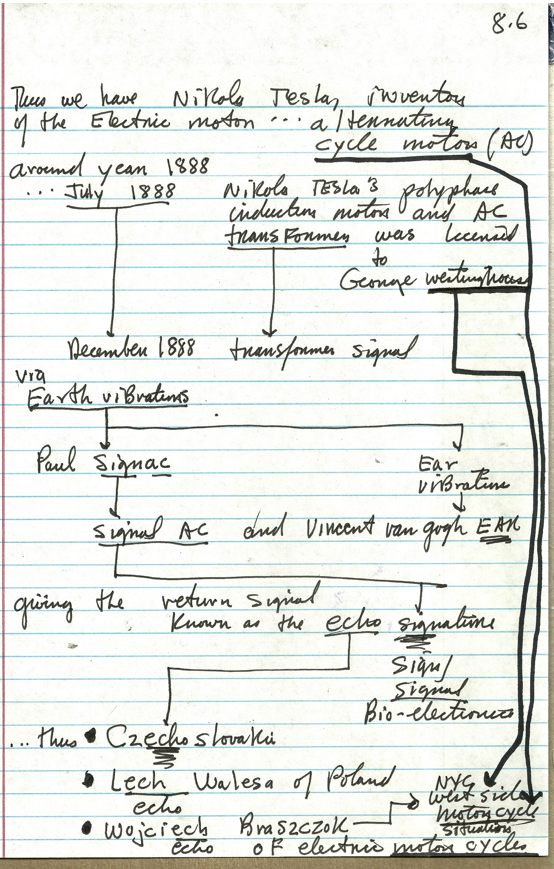 8.6
Thus we have Nikola Tesla, inventor
of the Electric motor ... alternating
cycle motors (AC)
around year 1888
... July 1888
Nikola Tesla's polyphase
induction motors and AC
transformer was licensed
to
George Westinghouse
December 1888 transformer signal
via
Earth vibrations
Paul Signac
Ear
vibrations
signal AC and Vincent van gogh EAR
giving the return signal
known as the echo signature
Sign/
signal
Bio-electronics
...thus • Czechoslovakia
• Lech Walesa of Poland
echo
• Wojciech Braszczok
echo of electric motor cycles
NYC
West side
motorcycle
situation